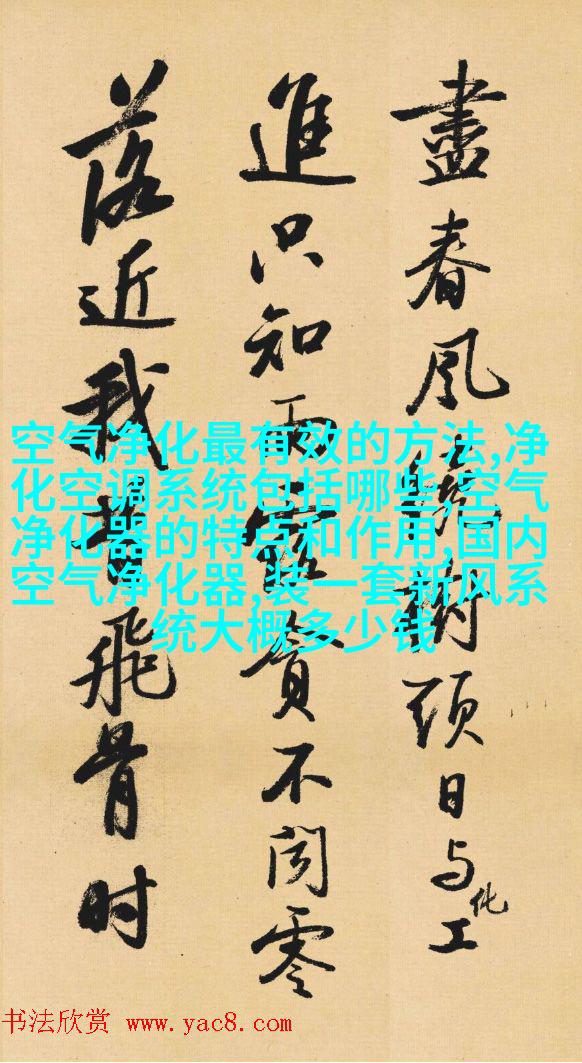 盡春風繞樹頭日与化工
進只知雨露貪不聞零
落近我昔飛骨时
空气净化最有效的方法,净
化空调系统包括哪些,空气
净化器的特点和作用,国内
空气净化器,装一套新风系
统大概多少钱
书法欣赏 www.yac8.com